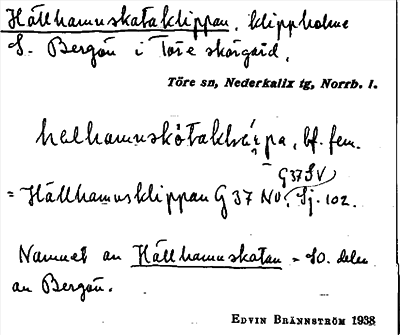 Hällhamnskataklippan, klippholme
S. Bergön i Töre skärgård.
Töre sn, Nederkalix tg, Norrb. l.
bf. fem.
G 37 SV
= Hällhamnsklippan G 37 NV. Sj. 102.
Namnet av Hällhamnskatan = SO. delen
av Bergön.
EDVIN BRÄNNSTRÖM 1938